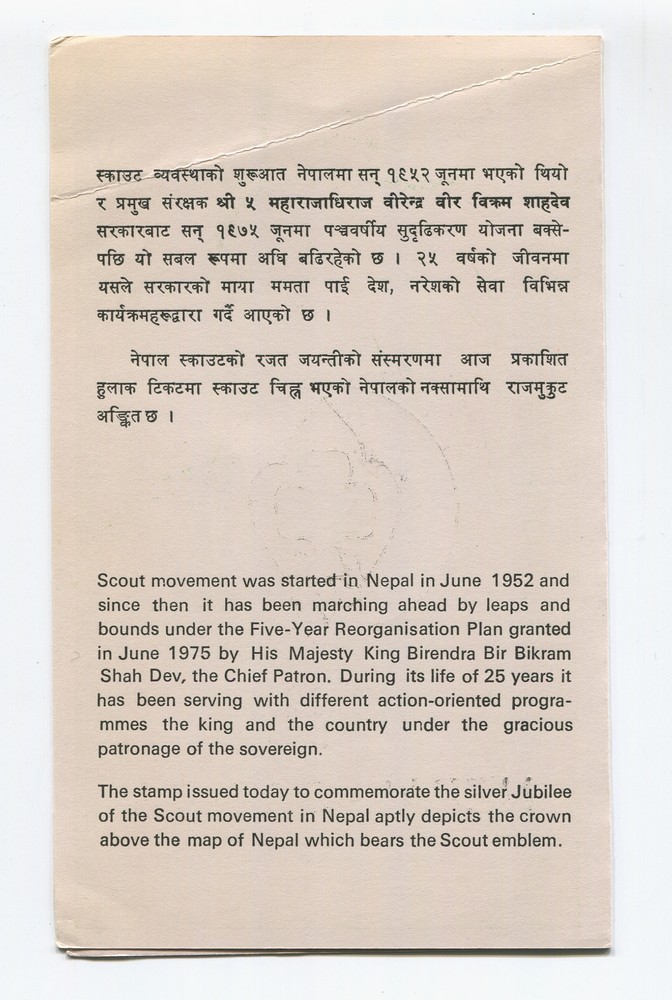 स्काउट व्यवस्थाको शुरूआत नेपालमा सन् १९५२ जूनमा भएको थियो
र प्रमुख संरक्षक श्री ५ महाराजाधिराज वीरेन्द्र वीर विक्रम शाहदेव
सरकारबाट सन् १९७५ जूनमा पञ्चवर्षीय सुदृढिकरण योजना बक्से-
पछि यो सबल रूपमा अघि बढिरहेको छ । २५ वर्षको जीवनमा
यसले सरकारको माया ममता पाई देश, नरेशको सेवा विभिन्न
कार्यक्रमहरूद्वारा गर्दै आएको छ ।
नेपाल स्काउटको रजत जयन्तीको संस्मरणमा आज प्रकाशित
हुलाक टिकटमा स्काउट चिह्न भएको नेपालको नक्सामाथि राजमुकुट
अङ्कित छ ।
Scout movement was started in Nepal in June 1952 and
since then it has been marching ahead by leaps and
bounds under the Five-Year Reorganisation Plan granted
in June 1975 by His Majesty King Birendra Bir Bikram
Shah Dev, the Chief Patron. During its life of 25 years it
has been serving with different action-oriented progra-
mmes the king and the country under the gracious
patronage of the sovereign.
The stamp issued today to commemorate the silver Jubilee
of the Scout movement in Nepal aptly depicts the crown
above the map of Nepal which bears the Scout emblem.